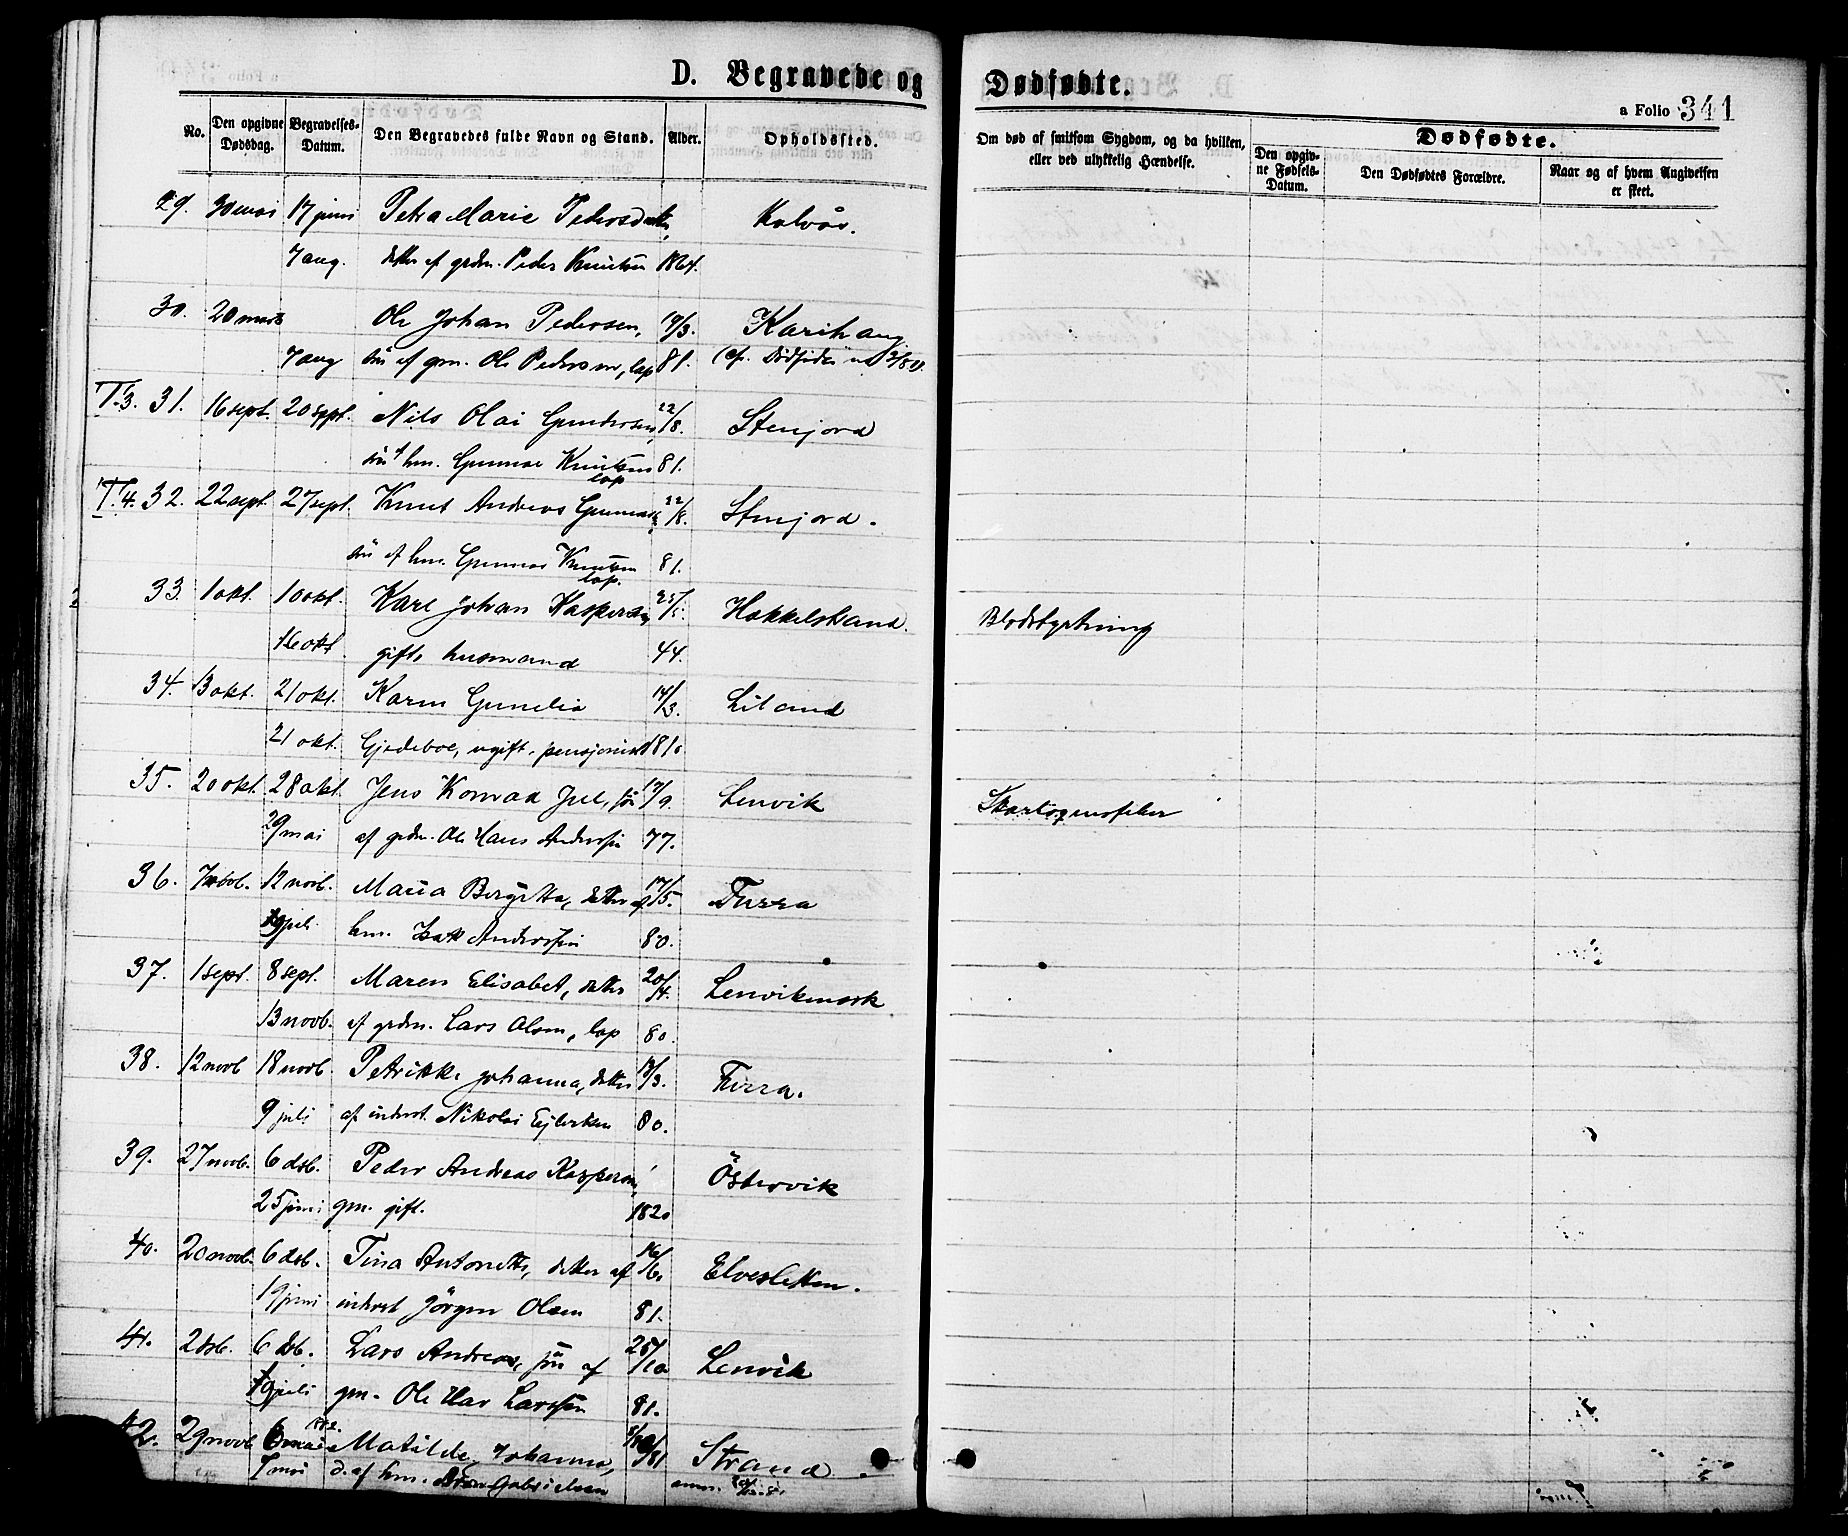 D. Begravede og Dødfødte.
a Folio 341
No.
Den opgivne Dødsdag.
Begravelses-Datum.
Den Begravedes fulde Navn og Stand.
Alder.
Opholdssted.
Om død af smitsom Sygdom, og da hvilken, eller ved ulykkelig Hændelse.
Dødfødte.
Den opgivne Fødsels-Datum.
Den Dødfødtes Forældre.
Naar og af hvem Angivelsen er skeet.
29. 30 mai 17 juni Petra Marie Pedersdatter, Kalvås.
7 aug. datter af grdm. Peder Knutsen 1864.
30. 20 marts Ole Johan Pedersen, 19/3. Karihaug
7 aug sön af gm. Ole Pedersen, lap 81.
T.3. 31. 16 sept. 20 sept. Nils Olai Gunnersen, 22/8. Stenjord
sön af hm. Gunnar Knutsen 81.
lap
T.4. 32. 22 sept. 27 sept. Knut Andreas 22/8. Stenjord.
sön af hm. Gunnar Knutsen 81.
lap.
33. 1 okt. 10 okt. Karl Johan Kaspersen, 25/5. Hokkelstrand. Blodstyrtning
16 okt gift husmand 44.
34. 13 okt. 21 okt. Karen Gunelia 14/3. Liland
21 okt. Gjedeboe, ugift, pensjonist 1810
35. 20 okt. 28 okt. Jens Konrad Jul, sön 17/9. Lenvik Skarlagensfeber
29 mai af grdm. Ole Hans Anderssen 77.
36. 7 novb. 12 novb. Maria Bergitta, datter af 17/5. Furra
19 juli. hm. Isak Anderssen 80.
37. 1 sept. 8 sept. Maren Elisabet, datter 20/4. Lenvikmark
13 novb. af grdm. Lars Olsen, lap 80.
38. 12 novb 18 novb. Petrikke Johanna, datter 13/3. Furra.
9 juli af inderst. Nikolai Ejlertsen 80.
39. 27 novb. 6 dsb. Peder Andreas Kaspersen, Östervik
25 juni gm. gift. 1820
40. 20 novb. 6 dsb. Tina Antonette, datter af 16/6. Elvesletten.
19 juni inderst Jörgen Olsen 81.
41. 2 dsb. 6 dsb. Lars Andreas, sön af 25/10 Lenvik
19 juli gm. Ole Larssen 81.
42. 29 novb 6 Matilde Johanna, Strand.
7 mai d. af hm. Gabrielsen